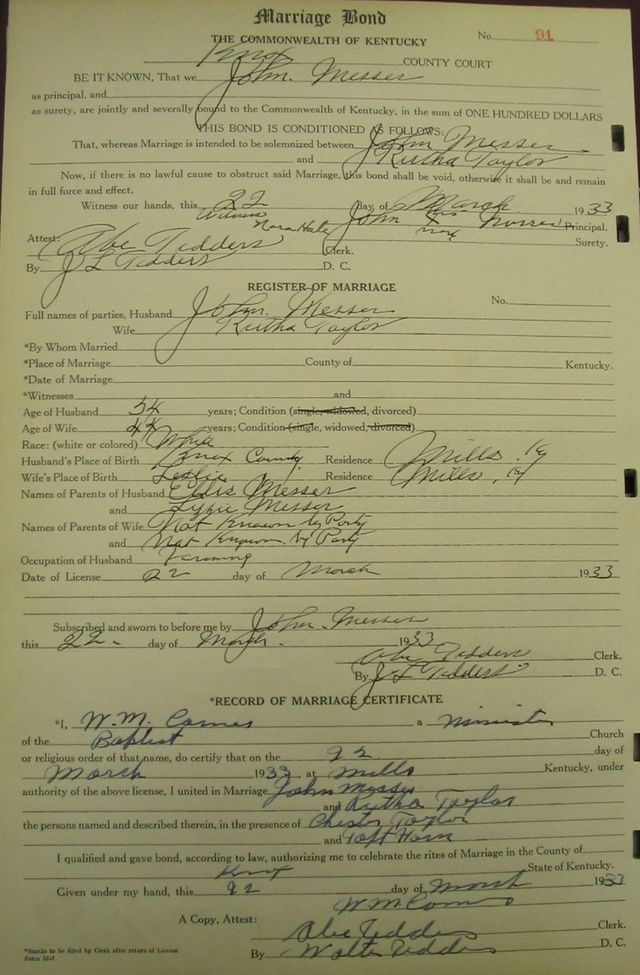 Marriage Bond
THE COMMONWEALTH OF KENTUCKY No. 91
Knox COUNTY COURT
BE IT KNOWN, That we John Messer
as principal, and
as surety, are jointly and severally bound to the Commonwealth of Kentucky, in the sum of ONE HUNDRED DOLLARS
THIS BOND IS CONDITIONED AS FOLLOWS:
That, whereas Marriage is intended to be solemnized between John Messer
and Rutha Taylor
Now, if there is no lawful cause to obstruct said Marriage, this bond shall be void, otherwise it shall be and remain
in full force and effect.
Witness our hands, this 22 day of March 1933
Witness Nora Hale John his X mark Messer Principal.
Surety.
Attest: Abe Tedders Clerk.
By J L Tedders D. C.
REGISTER OF MARRIAGE
No.
Full names of parties, Husband John Messer
Wife Rutha Taylor
*By Whom Married
*Place of Marriage County of Kentucky.
*Date of Marriage
*Witnesses and
Age of Husband 54 years; Condition (single, widowed, divorced)
Age of Wife 44 years; Condition (single, widowed, divorced)
Race: (white or colored) White
Husband's Place of Birth Knox County Residence Mills, Ky
Wife's Place of Birth Leslie Residence Mills, Ky
Names of Parents of Husband Ellis Messer
and Lizzie Messer
Names of Parents of Wife Not Known by Party
and Not Known by Party
Occupation of Husband Farming
Date of License 22 day of March 1933
Subscribed and sworn to before me by John Messer
this 22 day of March 1933
Abe Tedders Clerk.
By J L Tedders D. C.
*RECORD OF MARRIAGE CERTIFICATE
*I, W.M. Carnes a Minister
of the Baptist Church
or religious order of that name, do certify that on the 22 day of
March 1933 at Mills Kentucky, under
authority of the above license, I united in Marriage John Messer
and Rutha Taylor
the persons named and described therein, in the presence of Chester Taylor
and Toft Horn
I qualified and gave bond, according to law, authorizing me to celebrate the rites of Marriage in the County of
Knox State of Kentucky.
Given under my hand, this 22 day of March 1933
W M Carnes
A Copy, Attest: Abe Tedders Clerk.
By Walter Tedders D. C.
*Blanks to be filed by Clerk after return of License